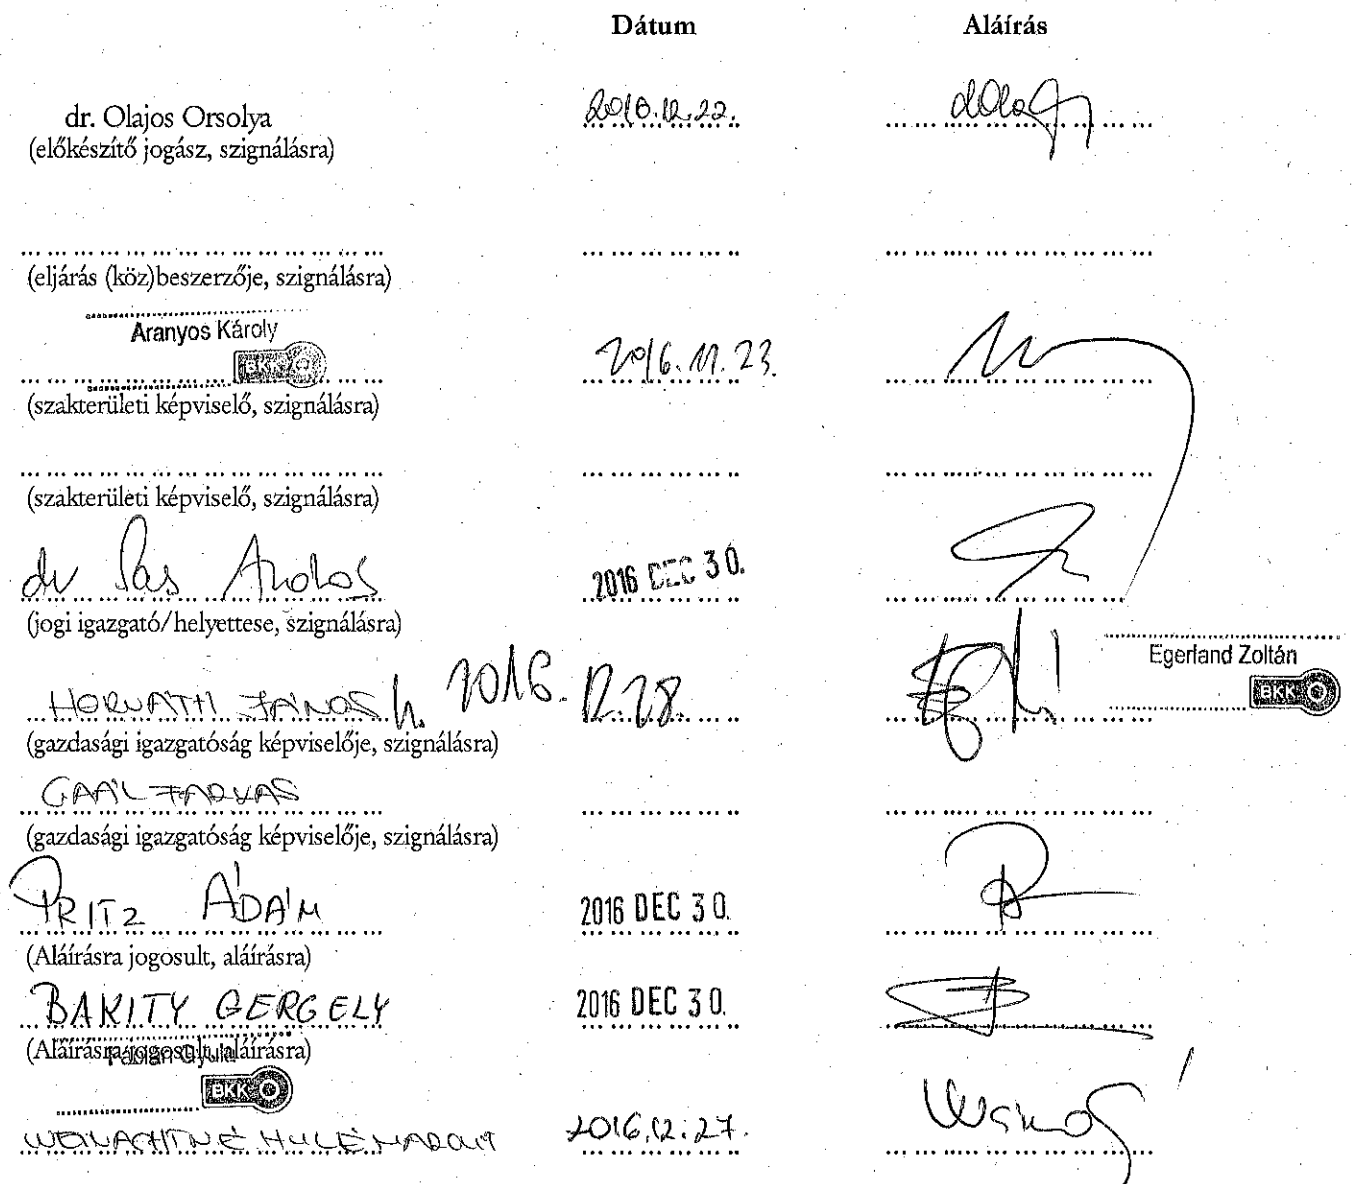 Dátum Aláírás
dr. Olajos Orsolya 2016.12.22.
(előkészítő jogász, szignálásra)
(eljárás (köz)beszerzője, szignálásra)
Aranyos Károly
BKK 2016. 23.
(szakterületi képviselő, szignálásra)
(szakterületi képviselő, szignálásra)
dr 2016 DEC 30.
(jogi igazgató/helyettese, szignálásra)
Egerland Zoltán
HORVÁTH JÁNOS h. 2016. 12.28. BKK
(gazdasági igazgatóság képviselője, szignálásra)
GAÁL FARKAS
(gazdasági igazgatóság képviselője, szignálásra)
PRITZ ÁDÁM 2016 DEC 30.
(Aláírásra jogosult, aláírásra)
BAKITY GERGELY 2016 DEC 30.
(Aláírásra jogosult, aláírásra)
BKK
2016.12.27.